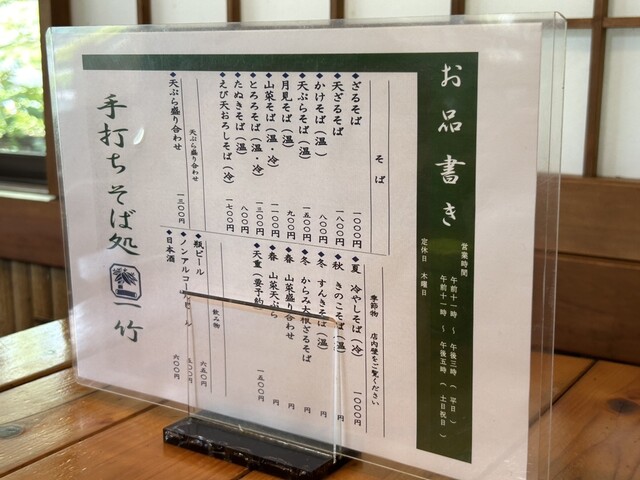 お品書き
営業時間
午前十一時 ～ 午後三時(平日)
午前十一時 ～ 午後五時(土日祝日)
定休日 木曜日
そば
◆ざるそば 一〇〇〇円
◆天ざるそば 一八〇〇円
◆かけそば(温) 八〇〇円
◆天ぷらそば(温) 一五〇〇円
◆月見そば(温) 九〇〇円
◆山菜そば(温・冷) 一一〇〇円
◆とろろそば(温・冷) 一三〇〇円
◆たぬきそば(温) 八〇〇円
◆えび天おろしそば(冷) 一七〇〇円
天ぷら盛り合わせ
◆天ぷら盛り合わせ 一三〇〇円
季節物 店内壁をご覧ください
◆夏 冷やしそば(冷) 一〇〇〇円
◆秋 きのこそば(温) 円
◆冬 すんきそば(温) 円
◆冬 からみ大根ざるそば 円
◆春 山菜盛り合わせ 円
◆春 山菜天ぷら 円
◆天重(要予約) 一五〇〇円
飲み物
◆瓶ビール 六五〇円
◆ノンアルコールビール 五〇〇円
◆日本酒 六〇〇円
手打ちそば処 一竹